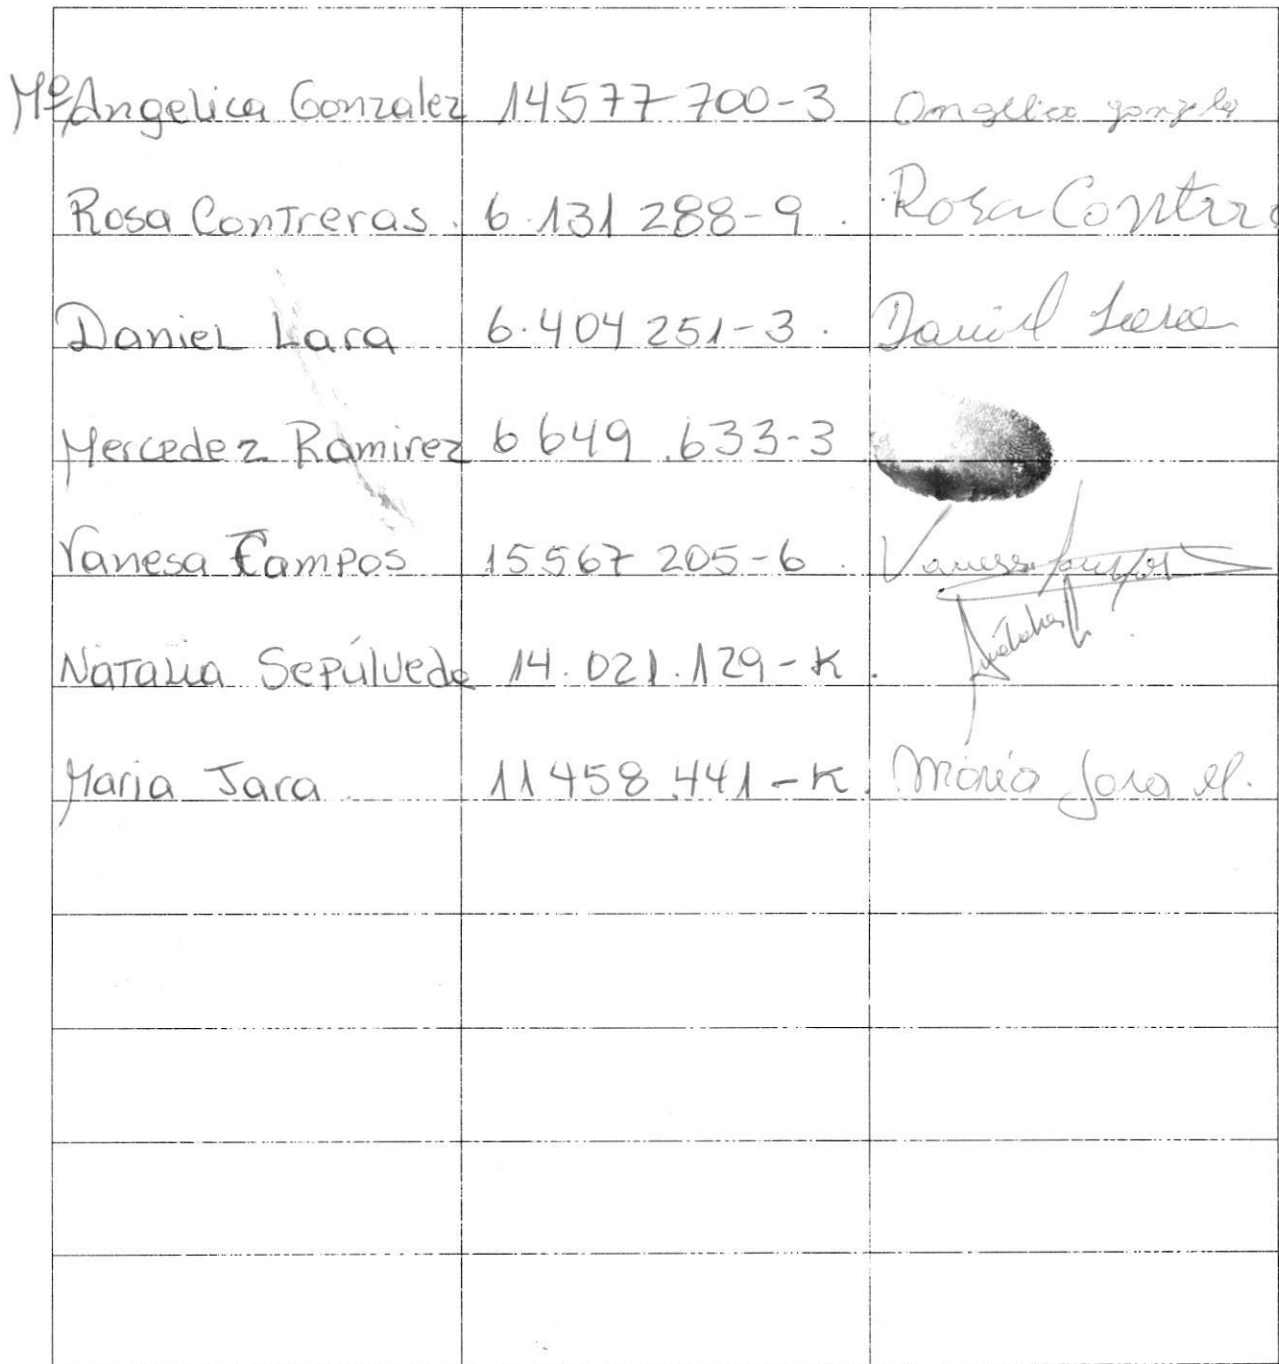 Mª Angelica Gonzalez 14577 700-3 Angelica gonzalez
Rosa Contreras. 6.131 288-9. Rosa Contre
Daniel Lara 6.404 251-3. Daniel Lara
Mercedez Ramirez 6 649.633-3
Vanesa Campos 15567 205-6. Vanessa Campos
Natalia Sepúlveda 14.021.129-K.
Maria Jara. 11458.441-K. Maria Jara M.